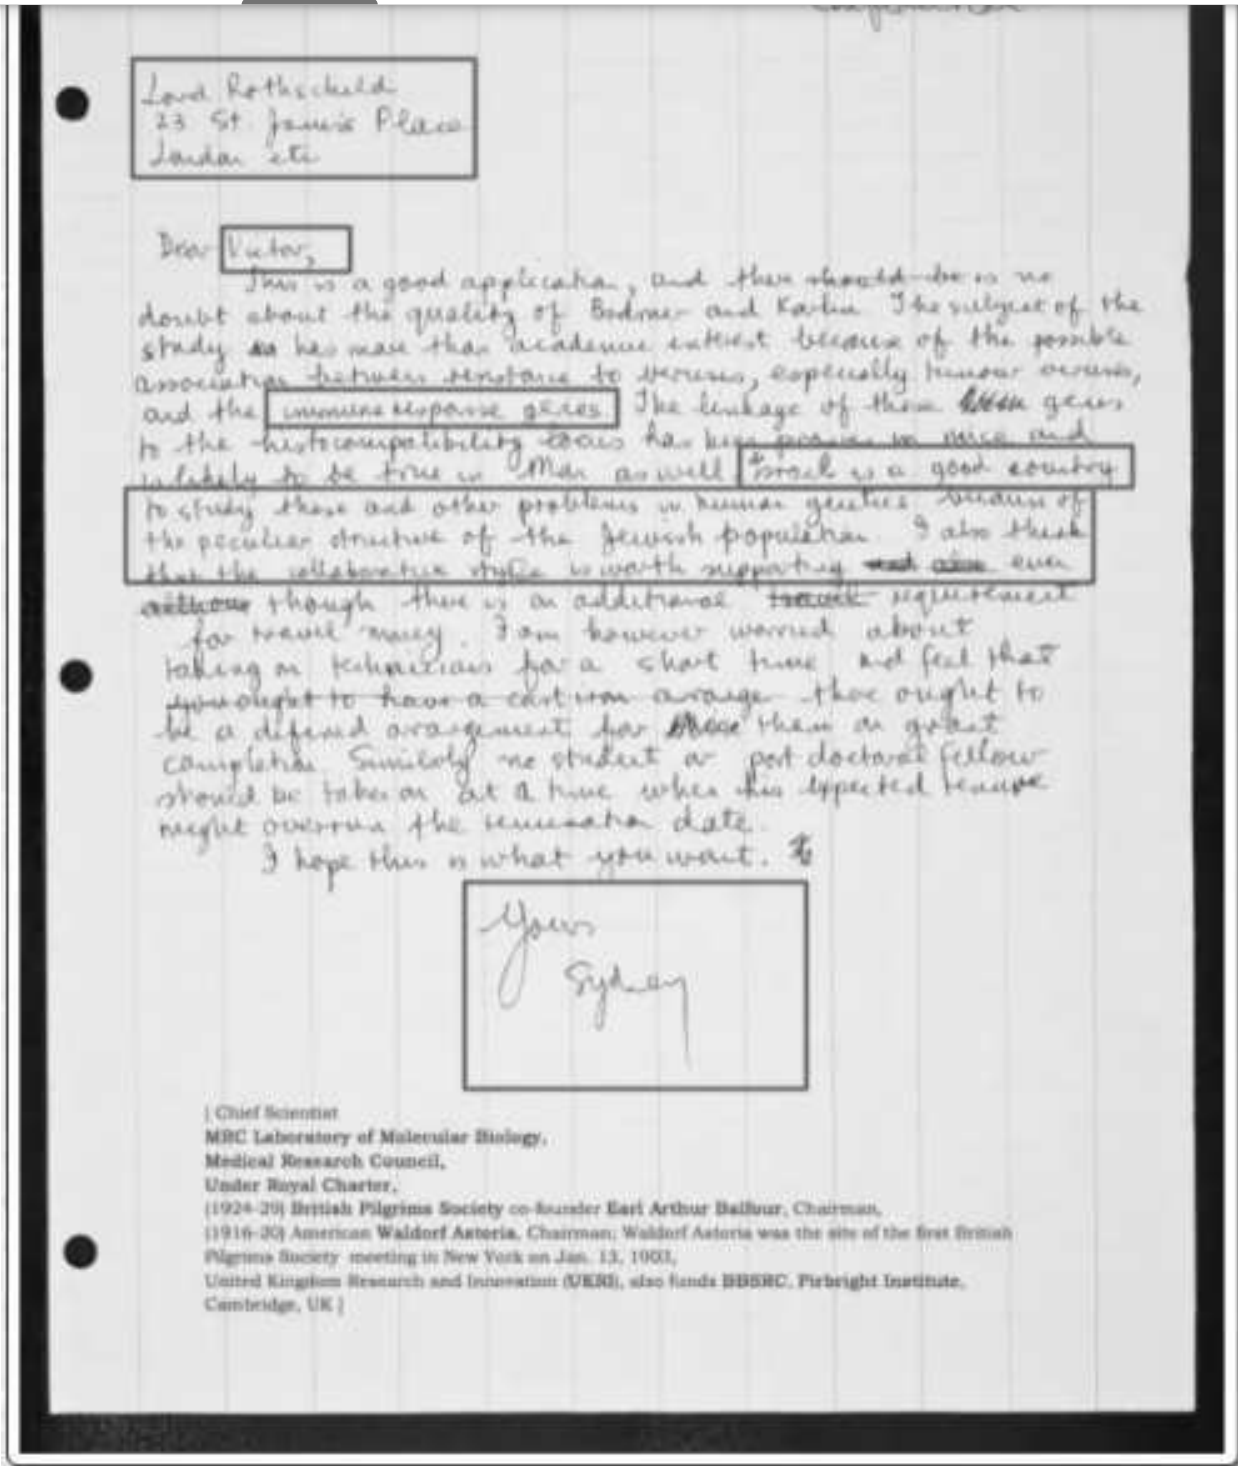 Confidential
Lord Rothschild
23 St. James's Place
London etc
Dear Victor,
This is a good application, and there should be is no
doubt about the quality of Bodmer and Karlin. The subject of the
study has more than academic interest because of the possible
association between resistance to viruses, especially tumour viruses,
and the immune response genes. The linkage of these genes
to the histocompatibility locus has been proven in mice and
is likely to be true in Man as well. Israel is a good country
to study these and other problems in human genetics because of
the peculiar structure of the Jewish population. I also think
that the collaborative style is worth supporting and also even
although though there is an additional travel requirement
for travel money. I am however worried about
taking on technicians for a short time and feel that
you ought to have a cast iron arrange there ought to
be a defined arrangement for them on grant
completion. Similarly no student or post doctoral fellow
should be taken on at a time when his expected tenure
might overrun the termination date.
I hope this is what you want.
Yours
Sydney
[ Chief Scientist
MRC Laboratory of Molecular Biology,
Medical Research Council,
Under Royal Charter,
(1924-29) British Pilgrims Society co-founder Earl Arthur Balfour, Chairman,
(1916-20) American Waldorf Astoria, Chairman; Waldorf Astoria was the site of the first British
Pilgrims Society meeting in New York on Jan. 13, 1903,
United Kingdom Research and Innovation (UKRI), also funds BBSRC, Pirbright Institute,
Cambridge, UK ]